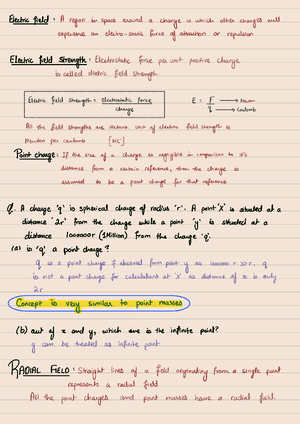 Electric field : A region in space around a charge in which other charges will
experience an electro-static force of attraction or repulsion.
Electric field Strength : Electrostatic force per unit positive charge
is called electric field strength.
Electric field Strength = electrostatic force
charge
E = F → Newton
q → Coulomb
All the field strengths are vectors. Unit of electric field strength is
Newton per coulomb [NC⁻]
Point charge : If the size of a charge is negligible in comparison to it's
distance from a certain reference, then the charge is
assumed to be a point charge for that reference
Q. A charge 'q' is spherical charge of radius 'r'. A point 'X' is situated at a
distance '2r' from the charge while a point 'y' is situated at a
distance 1000000r (1Million) from the charge 'q'.
(a) is 'q' a point charge?
q is a point charge if observed from point y as 1000000 r >> r. q
is not a point charge for calculations at 'X' as distance of x is only
2r
Concept is very similar to point masses
(b) out of x and y, which one is the infinite point?
y can be treated as infinite point
RADIAL FIELD : Straight lines of a field originating from a single point
represents a radial field
All the point charges and point masses have a radial field.